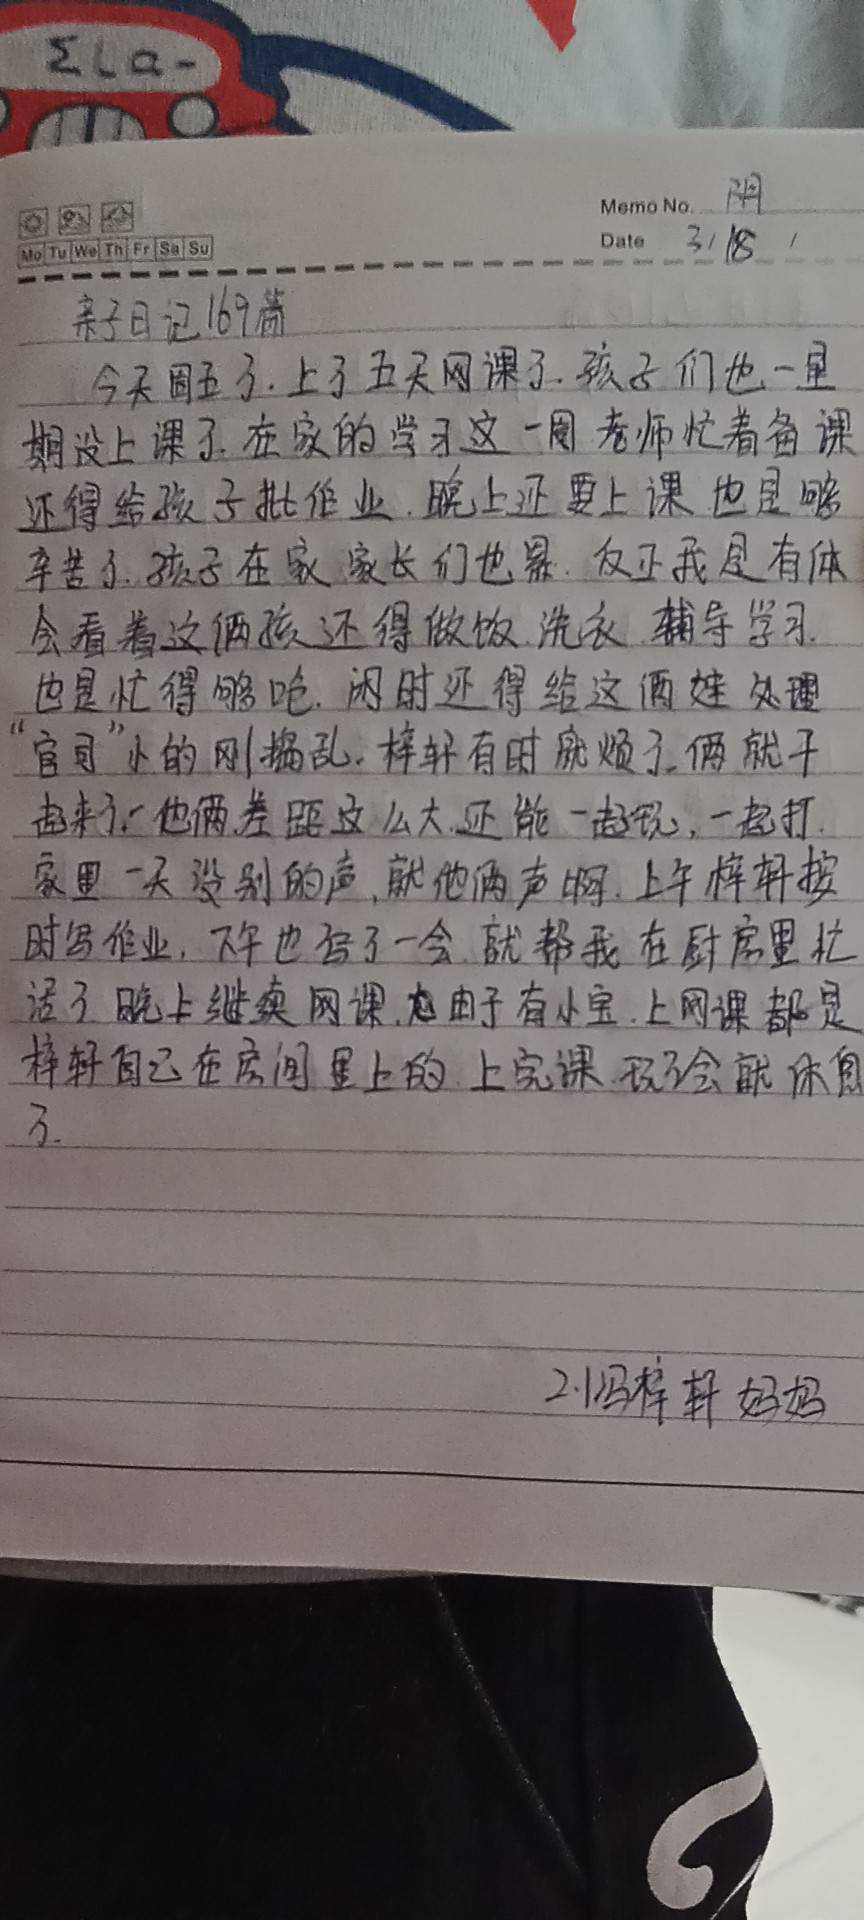 Memo No. 阴
Mo Tu We Th Fr Sa Su
Date 3/18/
亲子日记169篇
今天周五了.上了五天网课了.孩子们也一星
期没上课了.在家的学习这一周老师忙着备课
还得给孩子批作业.晚上还要上课也是够
辛苦了.孩子在家家长们也累.反正我是有体
会看着这俩孩还得做饭.洗衣.辅导学习.
也是忙得够呛.闲时还得给这俩娃处理
“官司”小的刚捣乱.梓轩有时就烦了.俩就干
起来了.他俩差距这么大.还能一起玩,一起打.
家里一天没别的声,就他俩声啊.上午梓轩按
时写作业,下午也写了一会.就帮我在厨房里忙
活了晚上继续网课.由于有小宝.上网课都是
梓轩自己在房间里上的.上完课.玩了会就休息
了.
2.1冯梓轩妈妈